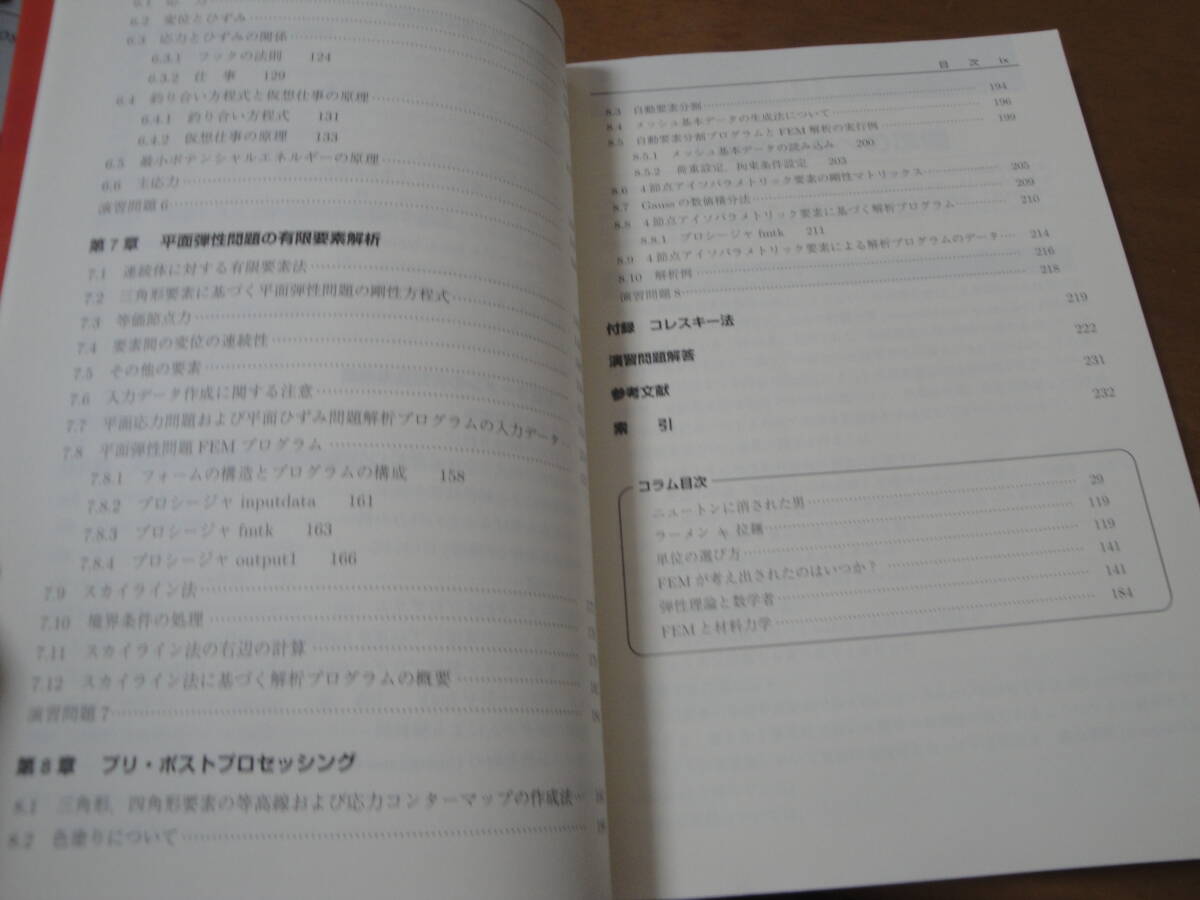 6.1 応 力
6.2 変位とひずみ
6.3 応力とひずみの関係
6.3.1 フックの法則 124
6.3.2 仕 事 129
6.4 釣り合い方程式と仮想仕事の原理
6.4.1 釣り合い方程式 131
6.4.2 仮想仕事の原理 133
6.5 最小ポテンシャルエネルギーの原理
6.6 主応力
演習問題 6
第7章 平面弾性問題の有限要素解析
7.1 連続体に対する有限要素法
7.2 三角形要素に基づく平面弾性問題の剛性方程式
7.3 等価節点力
7.4 要素間の変位の連続性
7.5 その他の要素
7.6 入力データ作成に関する注意
7.7 平面応力問題および平面ひずみ問題解析プログラムの入力データ
7.8 平面弾性問題 FEM プログラム
7.8.1 フォームの構造とプログラムの構成 158
7.8.2 プロシージャ inputdata 161
7.8.3 プロシージャ fmtk 163
7.8.4 プロシージャ output1 166
7.9 スカイライン法
7.10 境界条件の処理
7.11 スカイライン法の右辺の計算
7.12 スカイライン法に基づく解析プログラムの概要
演習問題 7
第8章 プリ・ポストプロセッシング
8.1 三角形，四角形要素の等高線および応力コンターマップの作成法
8.2 色塗りについて
目 次 ix
8.3 自動要素分割 194
8.4 メッシュ基本データの生成法について 196
8.5 自動要素分割プログラムと FEM 解析の実行例 199
8.5.1 メッシュ基本データの読み込み 200
8.5.2 荷重設定，拘束条件設定 203
8.6 4節点アイソパラメトリック要素の剛性マトリックス 205
8.7 Gauss の数値積分法 209
8.8 4節点アイソパラメトリック要素に基づく解析プログラム 210
8.8.1 プロシージャ fmtk 211
8.9 4節点アイソパラメトリック要素による解析プログラムのデータ 214
8.10 解析例 216
演習問題 8 218
付録 コレスキー法 219
演習問題解答 222
参考文献 231
索 引 232
コラム目次
ニュートンに消された男 29
ラーメン キ 拉麺 119
単位の選び方 119
FEM が考え出されたのはいつか？ 141
弾性理論と数学者 141
FEM と材料力学 184